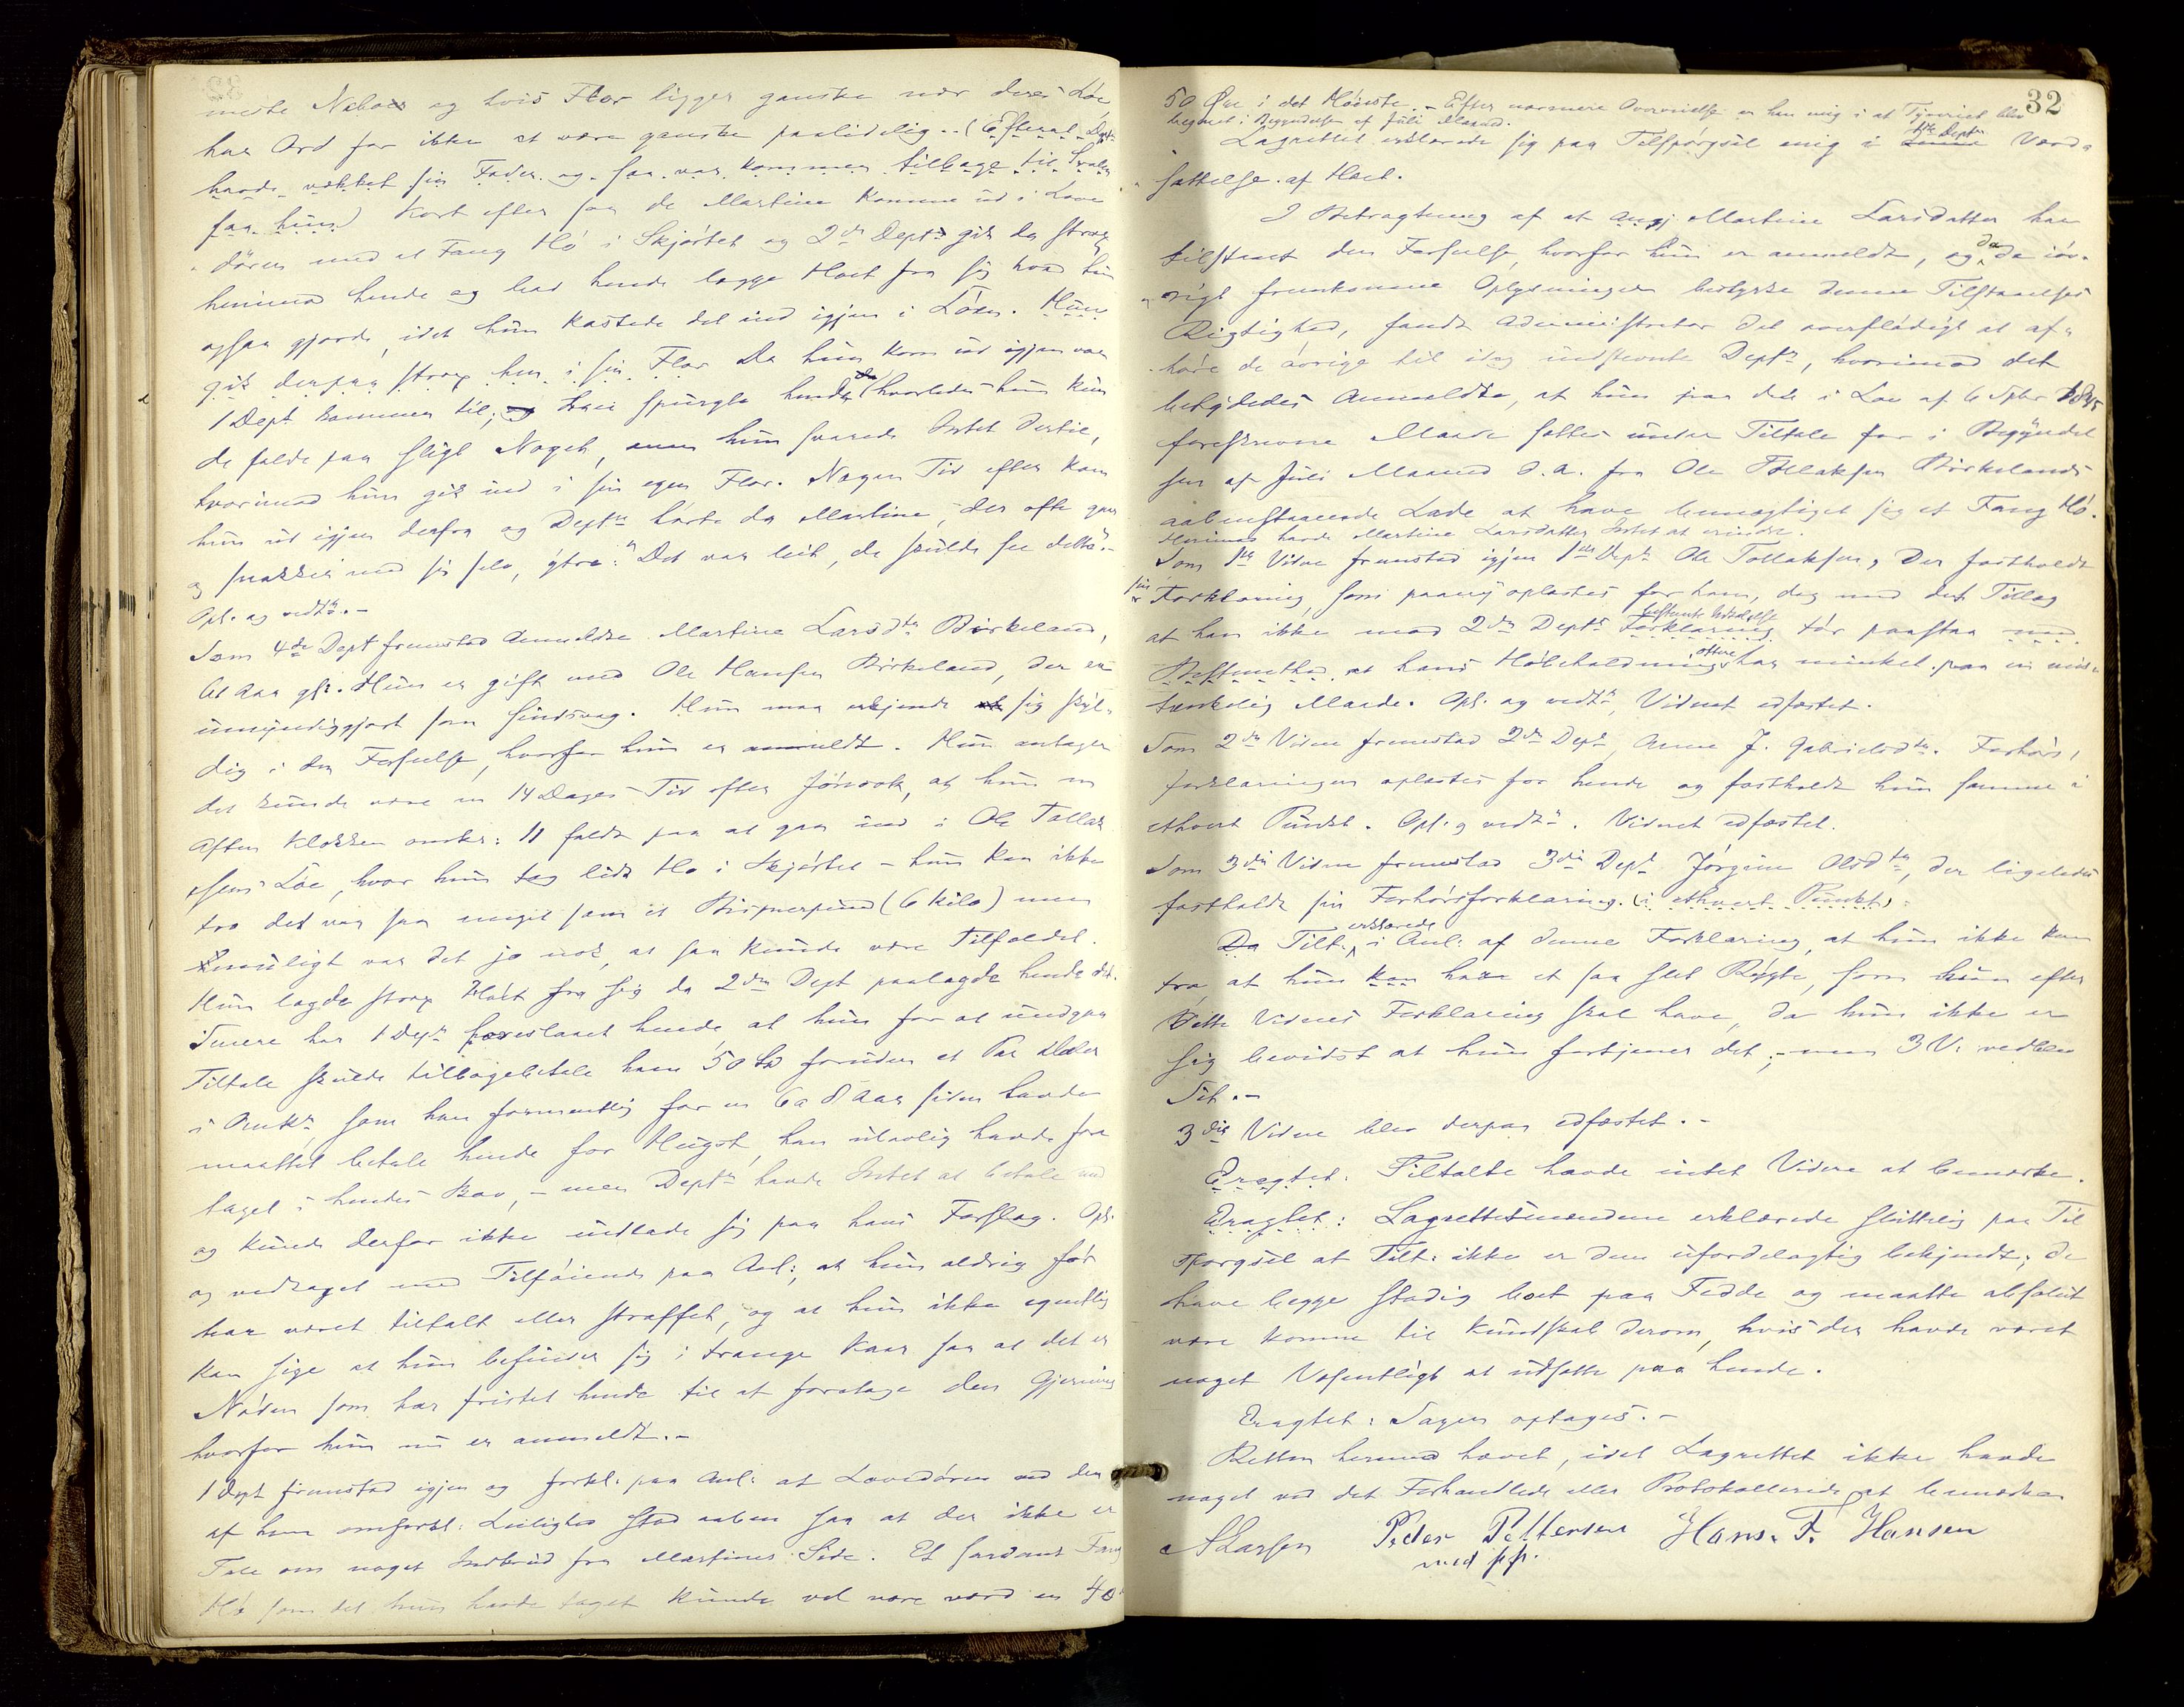 meste Naboer og hvis Flor ligger ganske nær deres Løe
har Ord for ikke at være ganske paalidelig.- (Efterat Dept
havde vækket sin Fader og saa var kommen tilbage til Svalen
saa hun) Kort efter saa de Martine komme ud i Love
døren med et Fang Hø i Skjørtet og 2den Dept gik da strax
henimod hende og bad hende lægge Høet fra sig hvad hun
ogsaa gjorde, idet hun kastede det ind igjen i Løen. Hun
gik derpaa strax hen i sin Flor. Da hun kom ud igjen var
1 Dept kommen til, og han spurgte hende da (hvorledes hun kun
de falde paa sligt Noget, men hun svarede Intet dertil,
hvorimod hun gik ind i sin egen Flor. Nogen Tid efter kom
hun ud igjen derfra og Deptn hørte da Martine, der ofte gaar
og snakker med sig selv, ytre: "Det var leit, de skulde see dette".-
Opl. og vedt.-
Som 4de Dept fremstod Anmeldte Martine Larsdtr Birkeland,
61 Aar gl. Hun er gift med Ole Hansen Birkeland, der er
umyndiggjort som sindsvag. Hun maa erkjende at sig skyl-
dig i den Forseelse, hvorfor hun er anmeldt. Hun antager
det kunde være en 14 Dages Tid efter Jonsok, at hun en
Aften Klokken omtr: 11 faldt paa at gaa ind i Ole Tollak
sens Løe, hvor hun tog lidt Hø i Skjørtet - hun kan ikke
tro det var saa meget som et Bismerpund (6 Kilo) men
muligt var det jo nok, at saa kunde være Tilfældet.
Hun lagde strax Høet fra sig da 2den Dept paalagde hende det.
Senere har 1 Dept foreslaaet hende, at hun for at undgaa
Tiltale skulde tilbagebetale ham 50 Kr foruden et Par Daler
i Omk, som han formentlig for en 6 a 8 Aar siden havde
maattet betale hende for Hugst, han ulovlig havde fore
taget i hendes Skov, - men Deptn havde Intet at betale med
og kunde derfor ikke indlade sig paa hans Forslag. Opl.
og vedtaget med Tilføiende paa Anl:, at hun aldrig før
har været tiltalt eller straffet, og at hun ikke egentlig
kan sige at hun befinder sig i trange Kaar saa at det er
Nøden som har fristet hende til at foretage den Gjerning
hvorfor hun nu er anmeldt.-
1 Dept fremstod igjen og forkl. paa Anl: at Lovedøren ved den
af ham omforkl: Leilighed stod aaben saa at der ikke er
Tale om noget Indbrud fra Martines Side. Et saadant Fang
Hø som det hun havde taget kunde vel være værd en 40
32
50 Øre i det Høieste. - Efter nærmere Overveielse er han enig i at Tyveriet blev
begaaet i Begyndelsen af Juli Maaned.
Lagrettet erklærede sig paa Tilspørgsel enig i 1ste Deptn Værd-
sættelse af Høet.
I Betragtning af at Angj Martine Larsdatter har
tilstaaet den Forseelse, hvorfor hun er anmeldt, og da de iøv-
rigt fremkomne Oplysninger bestyrke denne Tilstaaelses
Rigtighed, fandt Administrator det overflødigt at af-
høre de øvrige til idag indstevnte Dept, hvorimod det
betydedes Anmeldte, at hun paa den i Lov af 6 Spbr 1845
foreskrevne Maade sættes under Tiltale for i Begyndel
sen af Juli Maaned d.a. fra Ole Tollaksen Birkelands
aabenstaaende Lade at have bemægtiget sig et Fang Hø.
Herimod havde Martine Larsdatter Intet at erindre.
Som 1ste Vidne fremstod igjen 1ste Dept Ole Tollaksen, der fastholdt
sin Forklaring, som paany oplæstes for ham, dog med det Tillæg
at han ikke med 2den Depts bestemte Udtalelse Forklaring tør paastaa med
Bestemthed at hans Høbeholdning oftere har minket paa en mis-
tænkelig Maade. Opl. og vedt, Vidnet edfæstet.
Som 2det Vidne fremstod 2den Dept Anne J. Gabrielsdtr. Forhørs-
forklaringen oplæstes for hende og fastholdt hun samme i
ethvert Punkt. Opl. og vedt. Vidnet edfæstet.
Som 3die Vidne fremstod 3die Dept Jørgine Olsdtr, der ligeledes
fastholdt sin Forhørsforklaring. (i ethvert Punkt).
Da Tilt: erklærede i Anl: af denne Forklaring, at hun ikke kan
tro, at hun kan have et saa slet Rygte, som hun efter
dette Vidnes Forklaring skal have, da hun ikke er
sig bevidst at hun fortjener det; - men 3 V. vedblev
Sit.-
3die Vidne blev derpaa edfæstet.-
Eragtet: Tiltalte havde intet Videre at bemærke.
Eragtet: Lagrettesmændene erklærede sluttelig paa Til
spørgsel at Tilt: ikke er dem ufordelagtig bekjendt; de
have begge stadig boet paa Fedde og maatte absolut
være komne til Kundskab derom, hvis der havde været
noget Væsentligt at udsætte paa hende.
Eragtet: Sagen optages.-
Retten hermed hævet, idet Lagrettet ikke havde
noget ved det Forhandlede eller Protokollerede at bemærke.
A Larsen Peder Pettersen Hans. F. Hansen
med p.p.